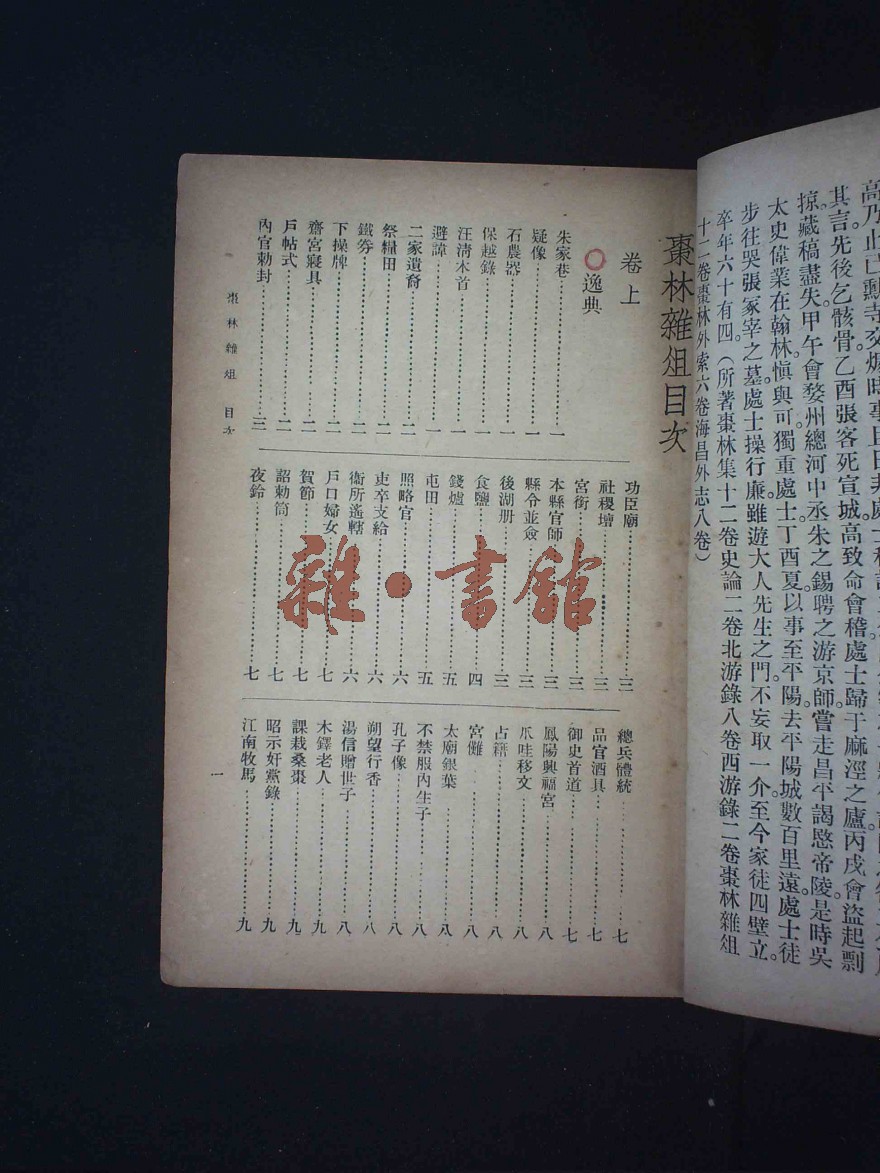 其言。先後乞骸骨乙酉張客死宣城高致命會稽處士歸于麻涇之廬丙戌會盜起剽
掠。藏稿盡失。甲午會婺州總河中丞朱之錫聘之游京師。嘗走昌平謁愍帝陵。是時吳
太史偉業在翰林愼與可。獨重處士丁酉夏。以事至平陽去平陽城數百里遠。處士徒
步往哭張冢宰之墓。處士操行廉雖遊大人先生之門。不妄取一介至今家徒四壁立。
卒年六十有四。(所著棗林集十二卷史論二卷北游錄八卷西游錄二卷棗林雜俎
十二卷棗林外索六卷海昌外志八卷)
棗林雜俎目次
卷上
○逸典
朱家巷一
疑像一
石農器一
保越錄一
汪淸木首一
避諱一
二家遺裔二
祭糧田二
鐵劵二
下操牌二
齋宮寢具二
戶帖式二
內官勅封三
功臣廟三
社稷壇三
宮銜三
本縣官師三
縣令並僉三
後湖册三
食鹽四
錢爐五
屯田五
照略官六
吏卒支給六
衞所遙轄六
戶口婦女七
賀節七
詔勅筒七
夜鈴七
總兵體統七
品官酒具七
御史首道七
鳳陽興福宮八
爪哇移文八
占籍八
宮儺八
太廟銀葉八
不禁服內生子八
孔子像八
朔望行香八
湯信贈世子八
木鐸老人九
課栽桑棗九
昭示奸黨錄九
江南牧馬九
棗林雜俎 目次
一
雜·書館